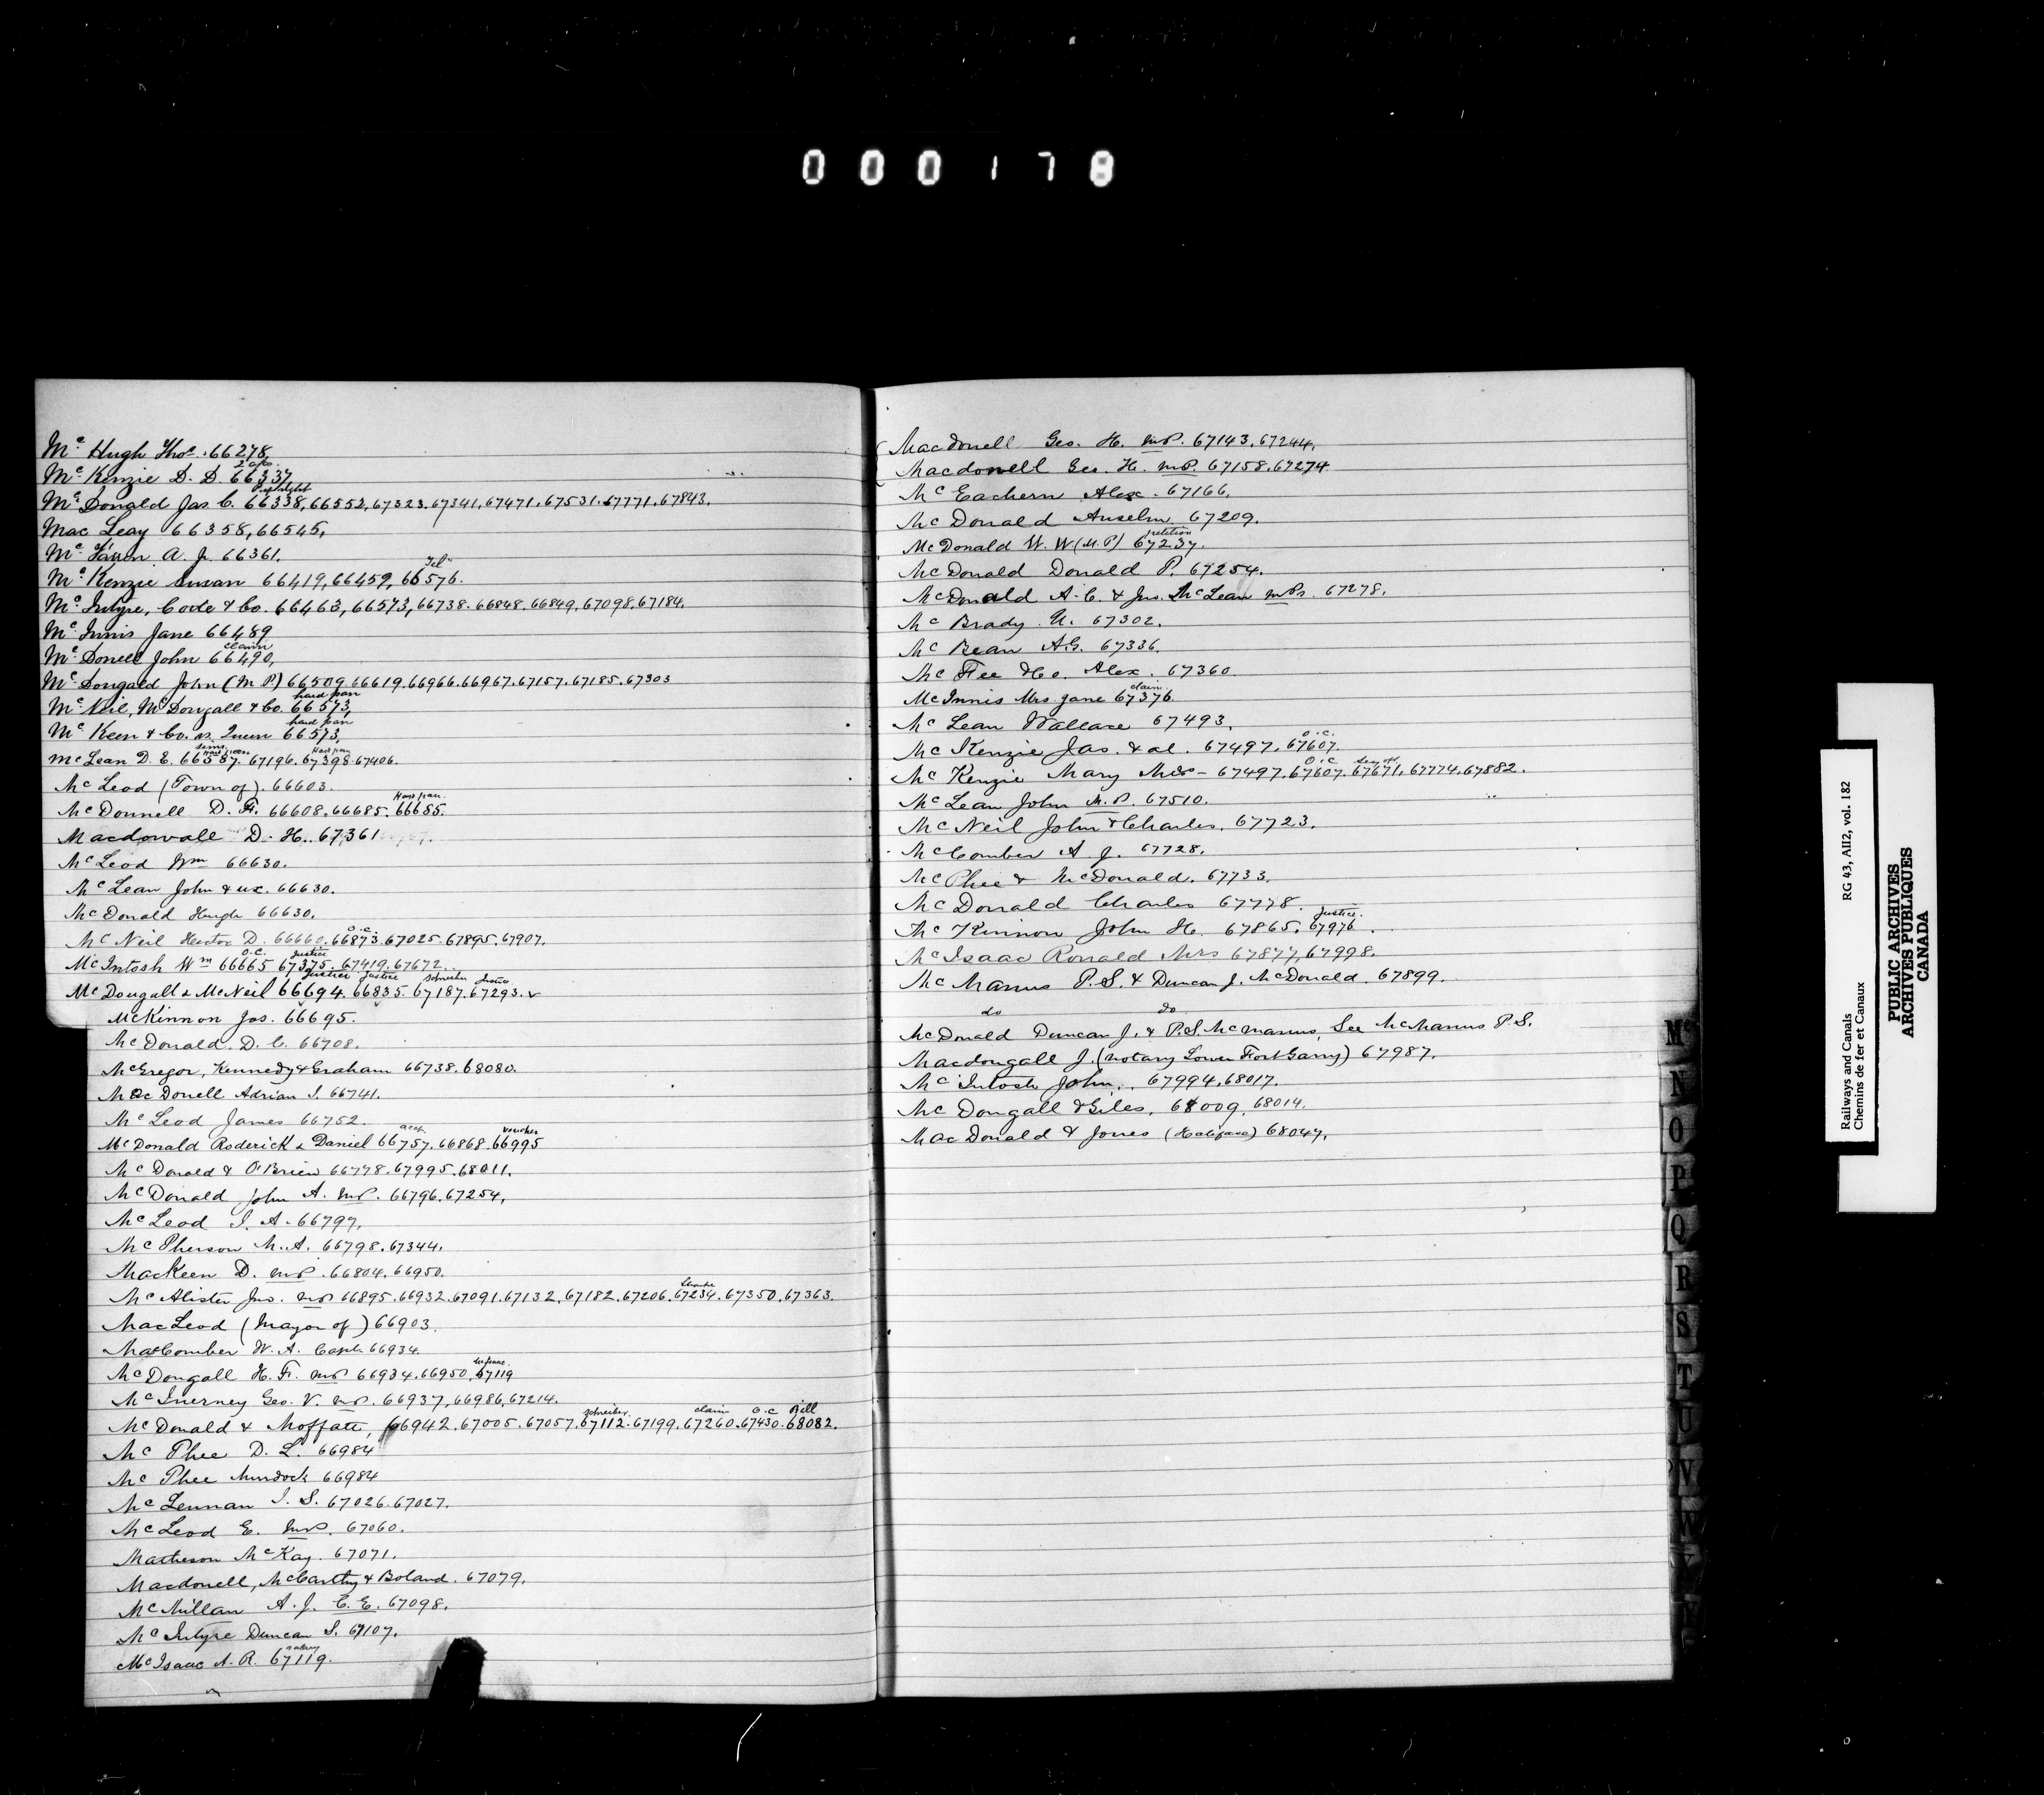 000178
Mc Hugh Thos. 66278,
2 apls.
Mc Kenzie D. D. 66337
Mc Donald Jas. C. 66338, 66552, 67323. 67341, 67471. 67531. 67771. 67843.
Mac Leay 66358, 66545,
Mc A. J. 66361.
Tel.
Mc Kenzie Susan 66419, 66459, 66576.
Mc Intyre, Code & Co. 66463, 66573, 66738. 66848. 66849, 67098. 67184.
Mc Innis Jane 66489
claim
Mc Donell John 66490,
Mc Dougald John (M P) 66509. 66619. 66966. 66967. 67157. 67185. 67303
hard pan
Mc Neil, McDougall & Co. 66573,
hard pan
Mc Keen & Co. vs. Queen 66573,
Hard pan
McLean D. E. 66587. 67196. 67398. 67406.
McLeod (Town of). 66603.
Hard pan.
McDonnell D. F. 66608. 66685. 66655.
Macdowall D. H. 67361
McLeod Wm 66630.
McLean John & ux. 66630.
McDonald Hugh 66630.
O.C.
McNeil Hector D. 66660. 66873. 67025. 67895. 67907.
O.C. Justice
McIntosh Wm 66665 67375. 67419. 67672.
Justice Justice Schreiber Justice
McDougall & McNeil 66694. 66835. 67187. 67293. v
McKinnon Jas. 66695.
McDonald. D. C. 66708.
McGregor, Kennedy & Graham 66738. 68080.
MacDonell Adrian I. 66741.
McLeod James 66752.
acct. voucher
McDonald Roderick & Daniel 66757. 66868. 66995
McDonald & O'Brien 66778. 67995. 68011.
McDonald John A. MP. 66796. 67254,
McLeod I. A. 66797,
McPherson M. A. 66798. 67344.
MacKeen D. MP. 66804. 66950.
McAlister Jno. MP 66895. 66932. 67091. 67132. 67182. 67206. 67234. 67350. 67363.
MacLeod (Mayor of) 66903.
MacComber W. A. Capt. 66934.
McIsaac.
McDougall H. F. MP 66934. 66950. 67119
McInerney Geo. V. MP. 66937, 66986, 67214.
Schreiber. claim O.C Bill
McDonald & Moffatt, 66942. 67005. 67057. 67112. 67199. 67260. 67430. 68082.
McPhee D. L. 66984
McPhee Murdock 66984
McLennan I. S. 67026. 67027.
McLeod E. MP. 67060.
Matheson McKay. 67071.
Macdonell, McCarthy & Boland. 67079.
McMillan A. J. C. E. 67098.
McIntyre Duncan S. 67107.
salary
McIsaac A. R. 67119.
Macdonell Geo. H. MP. 67143. 67244.
Macdowell Geo. H. MP. 67158. 67274
McEachern Alex. 67166.
McDonald Anselm. 67209.
petition
McDonald W. W (M.P) 67237.
McDonald Donald P. 67254.
McDonald A. C. & Jno. McLean MPs. 67278.
McBrady. U. 67302.
McBean A.G. 67336.
McFee & Co. Alex. 67360.
claim
McInnis Mrs Jane 67376
McLean Wallace 67493.
O.C.
McKenzie Jas. & al. 67497. 67607.
O.C
McKenzie Mary Mrs - 67497. 67607. 67671. 67774. 67882.
McLean John M.P. 67510.
McNeil John & Charles. 67723.
McComber A. J. 67728.
McPhee & McDonald. 67733.
McDonald Charles 67778.
Justice.
McKinnon John H. 67865. 67976.
McIsaac Ronald Mrs 67877, 67998.
McManus P.S. & Duncan J. McDonald. 67899.
do do
McDonald Duncan J. & P.S. McManus, See McManus P.S.
Macdougall J. (Notary Lower Fort Garry) 67987.
McIntosh John. 67994, 68017.
McDougall & Giles. 68009, 68014.
MacDonald & Jones (Halifax) 68047.
Mc
N
O
P
Q
R
S
T
U
V
W
Railways and Canals RG 43, AII2, vol. 182
Chemins de fer et Canaux
PUBLIC ARCHIVES
ARCHIVES PUBLIQUES
CANADA